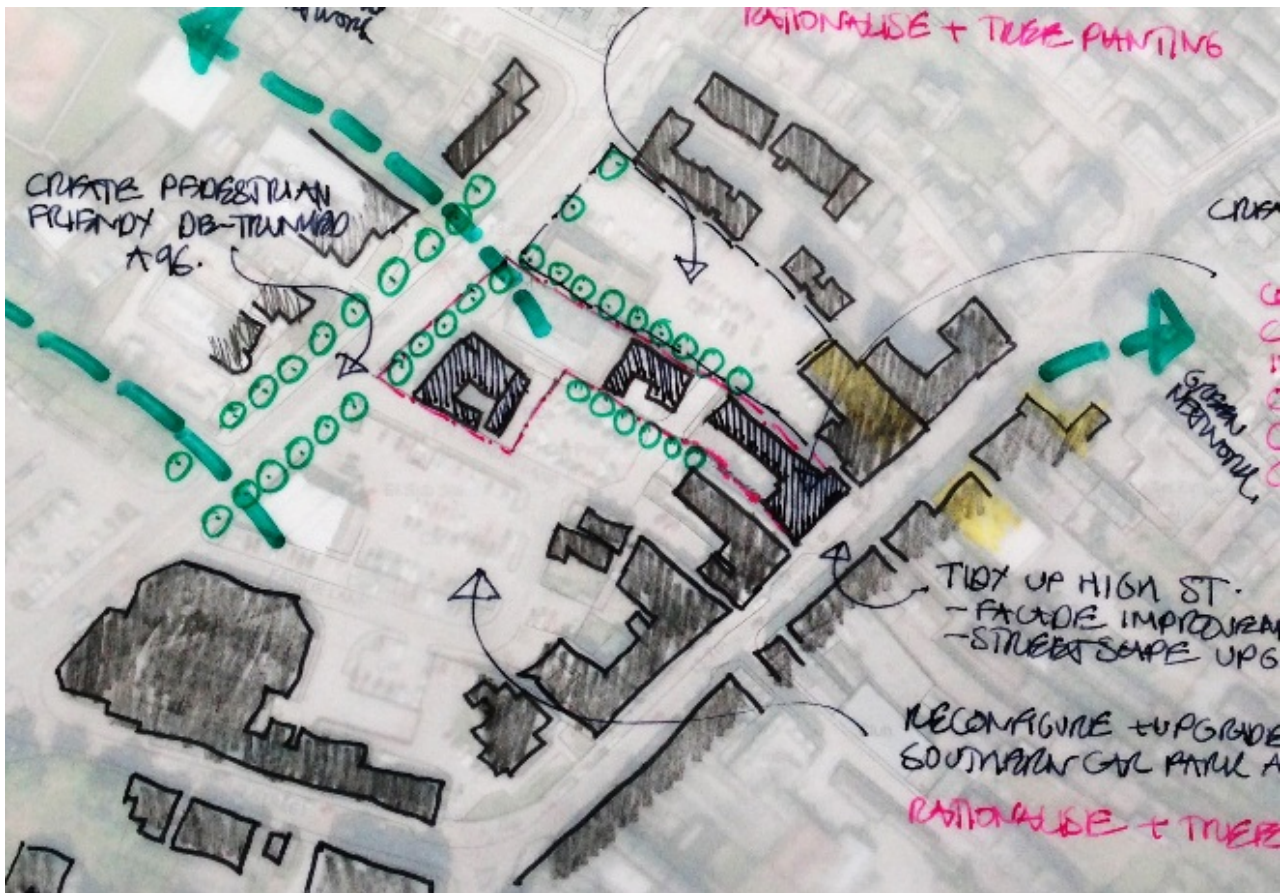 NETWORK
RATIONALISE + TREE PLANTING
CREATE PEDESTRIAN
FRIENDY DE-TRUNKED
A96.
CREA
GREEN
NETWORK
TIDY UP HIGH ST.
- FACADE IMPROVEM
- STREETSCAPE UPG
RECONFIGURE + UPGRADE
SOUTHERN CAR PARK A
RATIONALISE + TREE